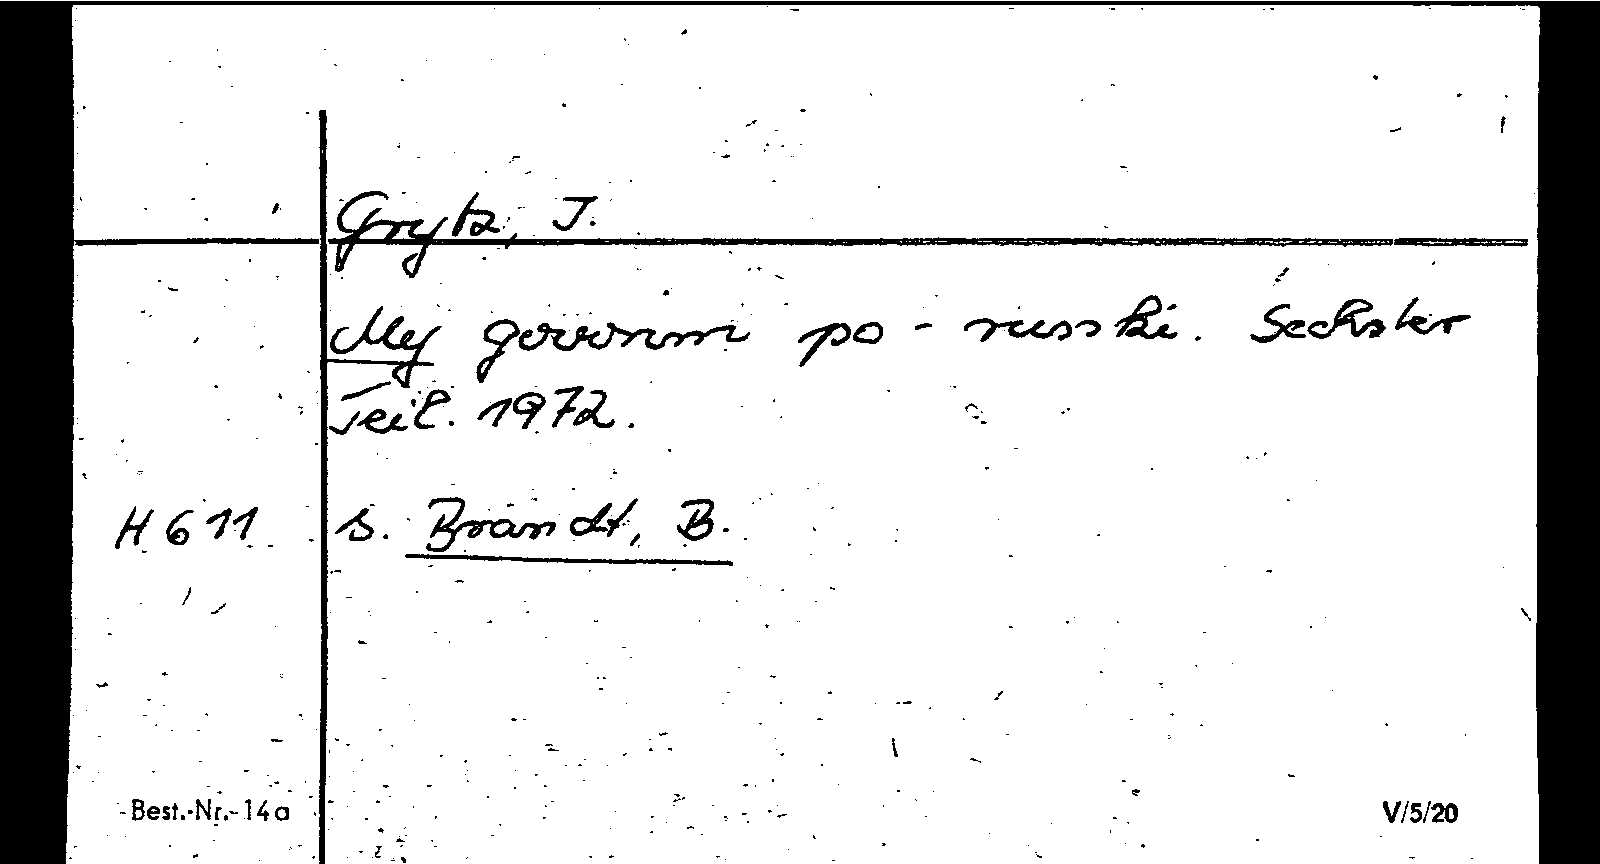 Grytz, J.
My govorim po-russki. Sechster
Teil. 1972.
H 611 s. Brandt, B.
Best.-Nr. 14a V/5/20